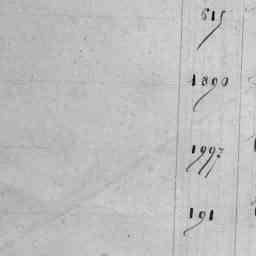 515
1890
1997
191